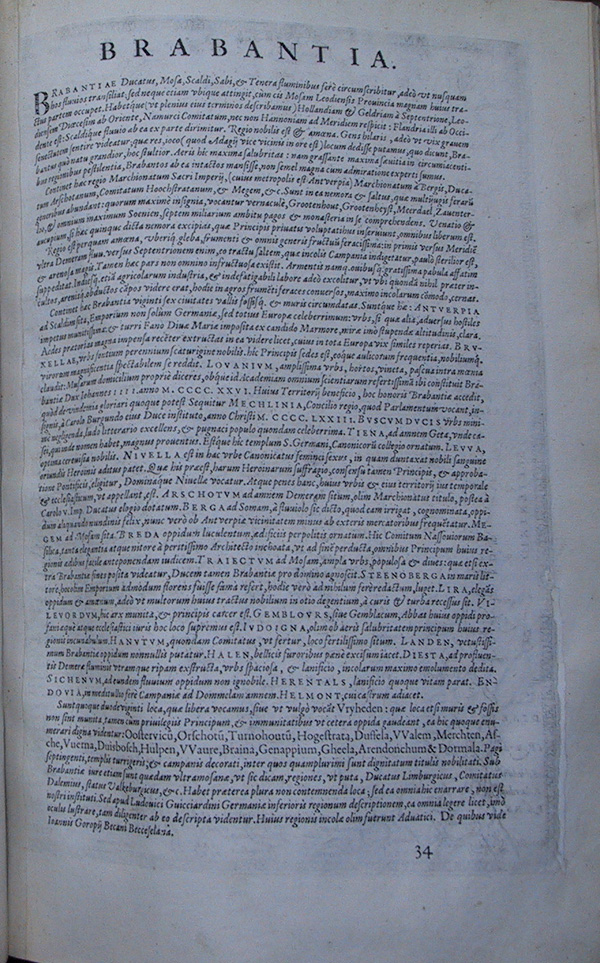 BRABANTIA.
BRABANTIAE Ducatus, Mosa, Scaldi, Sabi, & Tenera fluminibus ferè circumscribitur, adeò vt nusquam
hos fluuios transiliat; sed neque etiam vbique attingit, cùm cis Mosam Leodiensis Prouincia magnam huius tra-
ctus partem occupet. Habetque (vt plenius eius terminos describamus) Hollandiam & Geldriam à Septentrione, Leo-
diensem Diœcesim ab Oriente, Namurci Comitatum, nec non Hannoniam ad Meridiem respicit: Flandria illi ab Occi-
dente est: Scaldique fluuio ab ea ex parte dirimitur. Regio nobilis est & amœna. Gens hilaris, adeò vt vix grauem
senectutem sentire videatur, quæ res, ioco (quod Adagij vice vicini in ore est) locum dedisse putamus, quo dicunt, Bra-
bantus quò natu grandior, hoc stultior. Aeris hic maxima salubritas: nam grassante maxima sæuitia in circumiacenti-
bus regionibus pestilentia, Brabantos ab ea intactos mansisse, non semel magna cum admiratione experti sumus.
Continet hæc regio Marchionatum Sacri Imperij, (cuius metropolis est Antverpia) Marchionatum à Bergis, Duca-
tum Arschotanum, Comitatum Hoochstratanum, & Megem, &c. Sunt in ea nemora & saltus, quæ multijugis ferarū
generibus abundant: quorum maximè insignia, vocantur vernaculè, Grootenhout, Grootenheyst, Meerdael, Zauenter-
lo, & omnium maximum Soenien, septem miliarium ambitu pagos & monasteria in se comprehendens. Venatio &
aucupium, si hæc quinque dicta nemora excipias, quæ Principis priuatis voluptatibus inseruiunt, omnibus liberum est.
Regio est perquam amœna, vberiq́; gleba, frumenti & omnis generis fructuū feracissima: in primis versus Meridiē
vltra Demeram fluu. versus Septentrionem enim, eo tractu saltem, quæ incolis Campania indigetatur, paulò sterilior est,
& arenosa magis. Tamen hæc pars non omnino infructuosa existit. Armentis namq. ouibusq́; gratissima pabula affatim
suppeditat. Indiesq́; etiā agricolarum industria, & indefatigabili labore adeò excolitur, vt vbi quondā nihil præter in-
cultos, arenisq́; abductos cāpos videre erat, hodie in agros frumēti feraces conuersos, maximo incolarum cōmodo, cernas.
Continet hæc Brabantia viginti sex ciuitates vallis, fossisq́; & muris circumdatas. Suntque hæ: ANTVERPIA
ad Scaldim sita, Emporium non solùm Germaniæ, sed totius Europæ celeberrimum: vrbs, si quæ alia, aduersus hostiles
impetus munitissima: & turri Fano Diuæ Mariæ imposita ex candido Marmore, miræ imò stupendæ altitudinis, clara.
Aedes præterias magna impensa recèter extructas in ea videre licet, cuius in tota Europa vix similes reperias. BRV-
XELLAE, vrbs fontium perennium scaturigine nobilis. hic Principis sedes est, eoque aulicorum frequentia, nobiliumq́;
virorum magnificentia spectabilem se reddit. LOVANIVM, amplissima vrbs, hortos, vineta, pascua intra mœnia
claudit: Musarum domicilium propriè diceres, ob quæ id Academiam omnium scientiarum refertissimā ibi constituit Bra-
bantiæ Dux Iohannes IIII. anno M. CCCC. XXVI. Huius Territorij beneficio, hoc honoris Brabantiæ accedit,
quòd de vindemia gloriari quoque potest. Sequitur MECHLINIA, Concilio regio, quod Parlamentum vocant, in-
signis, à Carolo Burgundo eius Duce instituto, anno Christi M. CCCC. LXXIII. BVSCVMDVCIS vrbs mini-
mè negligenda, ludo litterario excellens, & pugnaci populo quondam celeberrima. TIENA, ad amnem Geta, vnde ca-
sei, qui inde nomen habet, magnus prouentus. Estque hic templum S. Germani, Canonicorū collegio ornatum. LEVVA,
optima cereuisia nobilis. NIVELLA est in hac vrbe Canonicatus feminei sexus, in quam duntaxat nobili sanguine
oriundis Heroinis aditus patet. Quæ his præest, harum Heroinarum suffragio, consensu tamen Principis, & approba-
tione Pontificis, eligitur, Dominaque Niuellæ vocatur. Atque penes hanc, huius vrbis & eius territorij ius temporale
& ecclesiasticum, vt appellant, est. ARSCHOTVM ad amnem Demeram situm, olim Marchionatus titulo, postea à
Carolo V. Imp. Ducatus elogio dotatum. BERGA ad Somam, à fluuiolo sic dicto, quod eam irrigat, cognominata, oppi-
dum aliquando nundinis felix, nunc verò ob Antverpiæ vicinitatem minus ab exteris mercatoribus frequētatur. ME-
GEM ad Mosam sita. BREDA oppidum luculentum, ædificijs perpolitis ornatum. Hic Comitum Nassouiorum Ba-
silica, tanta elegantia atque nitore à peritissimo Architecto inchoata, vt ad finē perducta, omnibus Principum huius re-
gionis ædibus facilè anteponendam iudicem. TRAIECTVM ad Mosam, ampla vrbs, populosa & diues: quæ etsi ex-
tra Brabantiæ fines posita videatur, Ducem tamen Brabantiæ pro domino agnoscit. STEENOBERGA in maris lit-
tore, hoc olim Emporium admodum florens fuisse fama refert, hodie verò ad nihilum ferè redactum, luget. LIRA, elegās
oppidum & amœnum, adeò vt multorum huius tractus nobilium in otio degentium, à curis & turba recessus sit. VI-
LEVORDVM, hic arx munita, & principis carcer est. GEMBLOVRS, siue Gemblacum, Abbas huius oppidi pro-
fani æquè atque ecclesiastici iuris hoc loco supremus est. IVDOIGNA, olim ob aeris salubritatem principum huius re-
gionis incunabulum. HANVTVM, quondam Comitatus, vt fertur, loco fertilissimo situm. LANDEN, vetustissi-
mum Brabantiæ oppidum nonnullis putatur. HALEN, bellicis furoribus pœnè excisum iacet. DIESTA, ad profluen-
tis Demeræ fluminis vtramque ripam exstructa, vrbs spaciosa, & lanificio, incolarum maximo emolumento dedita.
SICHENVM, ad eundem fluuium oppidum non ignobile. HERENTALS, lanificio quoque vitam parat. EN-
DOVIA, in meditullio ferè Campaniæ ad Dommelam amnem. HELMONT, cui castrum adiacet.
Sunt quoque duodeviginti loca, quæ libera vocamus, siue vt vulgò vocāt Vryheden: quæ loca etsi muris & fossis
non sint munita, tamen cum priuilegijs Principum, & immunitatibus vt cetera oppida gaudent, ea hic quoque enu-
merari digna videntur: Oostervicū, Orschotū, Turnohoutū, Hogestrata, Duffela, VValem, Merchten, As-
che, Vuerna, Duisbosch, Hulpen, VVaure, Braina, Genappium, Gheela, Arendonchum & Dormala. Pagi
septingenti, templis turrigeris, & campanis decorati, inter quos quamplurimi sunt dignitatum titulis nobilitati. Sub
Brabantiæ iure etiam sunt quædam vltramosana, vt sic dicam, regiones, vt puta, Ducatus Limburgicus, Comitatus
Dalemius, status Valkeburgicus, &c. Habet præterea plura non contemnenda loca: sed ea omnia hic enarrare, non est
nostri instituti. Sed apud Ludouici Guicciardini Germaniæ inferioris regionum descriptionem, ea omnia legere licet, imò
oculis lustrare, tam diligenter ab eo descripta videntur. Huius regionis incolæ olim fuêrunt Aduatici. De quibus vide
Ioannis Goropij Becani Becceselana.
34